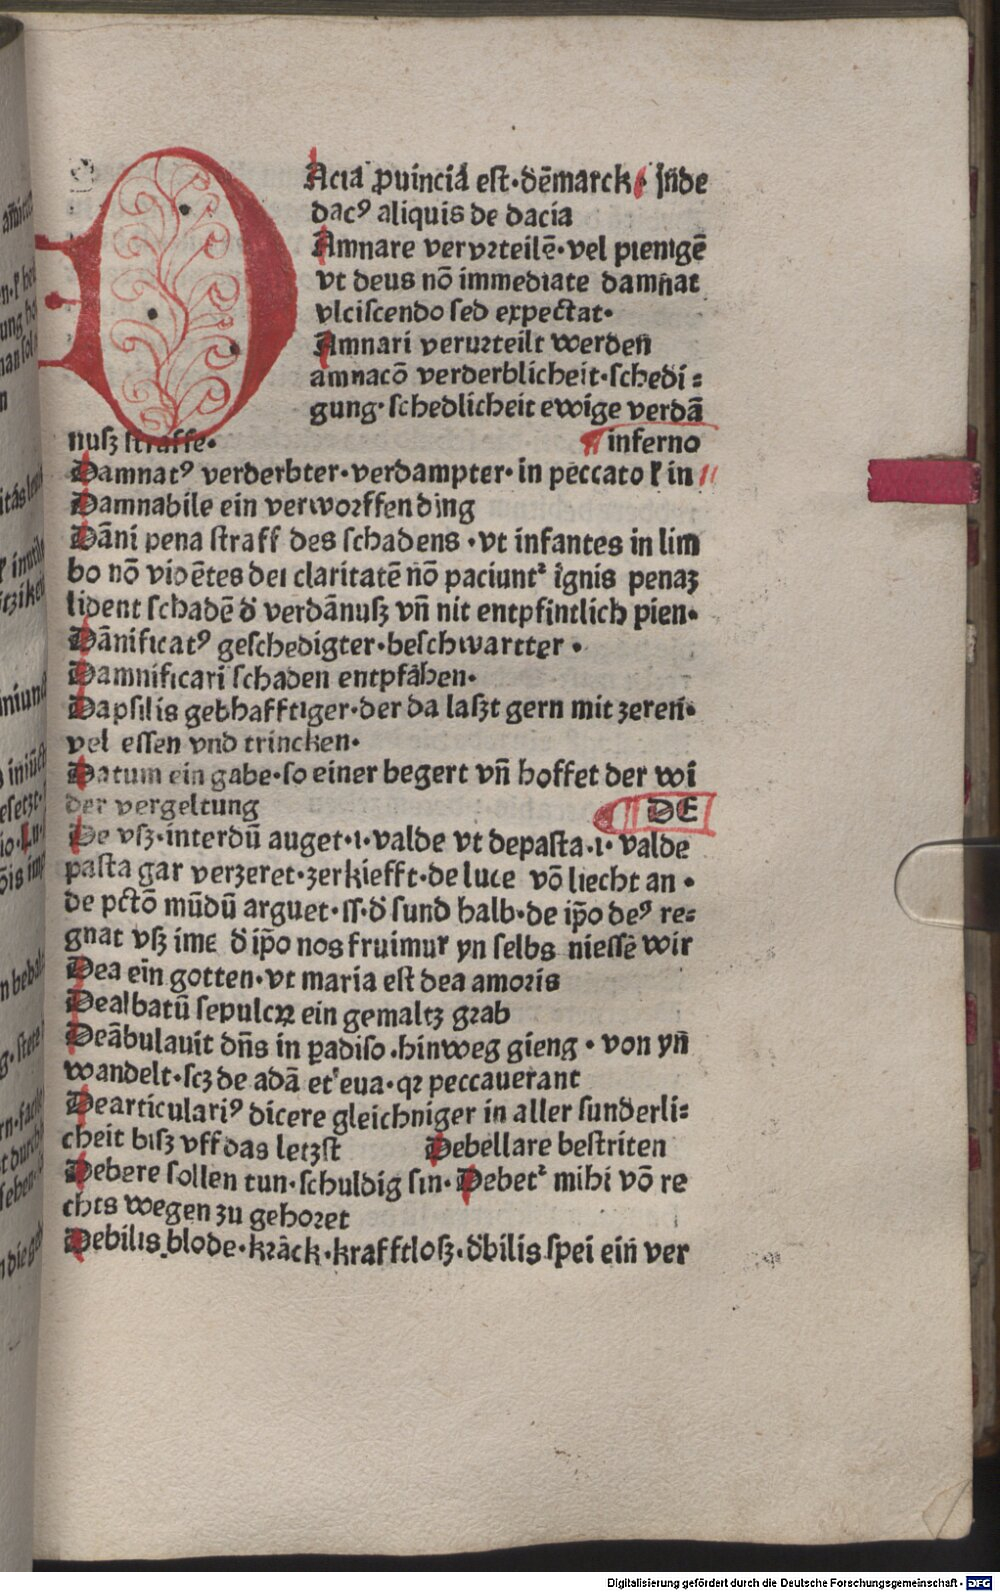 D Acia ꝓuincia est·dēmarck· Jn̄de
dacꝰ aliquis de dacia
Amnare verurteilē·vel pienigē
vt deus nō immediate damn̄at
vlciscendo sed expectat·
Amnari verurteilt werden
amnacō verderblicheit·schedi⸗
gung·schedlicheit ewige verdā
nusz straffe·
inferno
Damnatꝰ verderbter·verdampter·in peccato ł in
Damnabile ein verworffen ding
Dāni pena straff des schadens·vt infantes in lim
bo nō vidētes dei claritatē nō paciunt᷑ ignis penaz
lident schadē d̄ verdānusz vn̄ nit entpfintlich pien·
Dānificatꝰ geschedigter·beschwartter·
Damnificari schaden entpfåhen·
Dapsilis gebhafftiger·der da laszt gern mit zeren·
vel essen vnd trincken·
Datum ein gabe·so einer begert vn̄ hoffet der wi
der vergeltung
DE
De vsz·interdū auget·i·valde vt depasta·i·valde
pasta gar verzeret·zerkiefft·de luce vō liecht an·
de pctō mūdū arguet·ss·d̄ sund halb·de ip̄o deꝰ re⸗
gnat vsz ime d̄ ip̄o nos fruimur yn selbs niessē wir
Dea ein gotten·vt maria est dea amoris
Dealbatū sepulcꝝ ein gemaltz grab
Deābulauit dn̄s in ꝑadiso·hinweg gieng·von yn̄
wandelt·scz de adā et eua·qꝛ peccauerant
Dearticulariꝰ dicere gleichniger in aller sunderli⸗
cheit bisz vff das letzst Debellare bestriten
Debere sollen tun·schuldig sin·Debet᷑ mihi vō re
chts wegen zu gehoret
Debilis blode·krāck·krafftlosz·d̄bilis spei ein ver
Digitalisierung gefördert durch die Deutsche Forschungsgemeinschaft - DFG